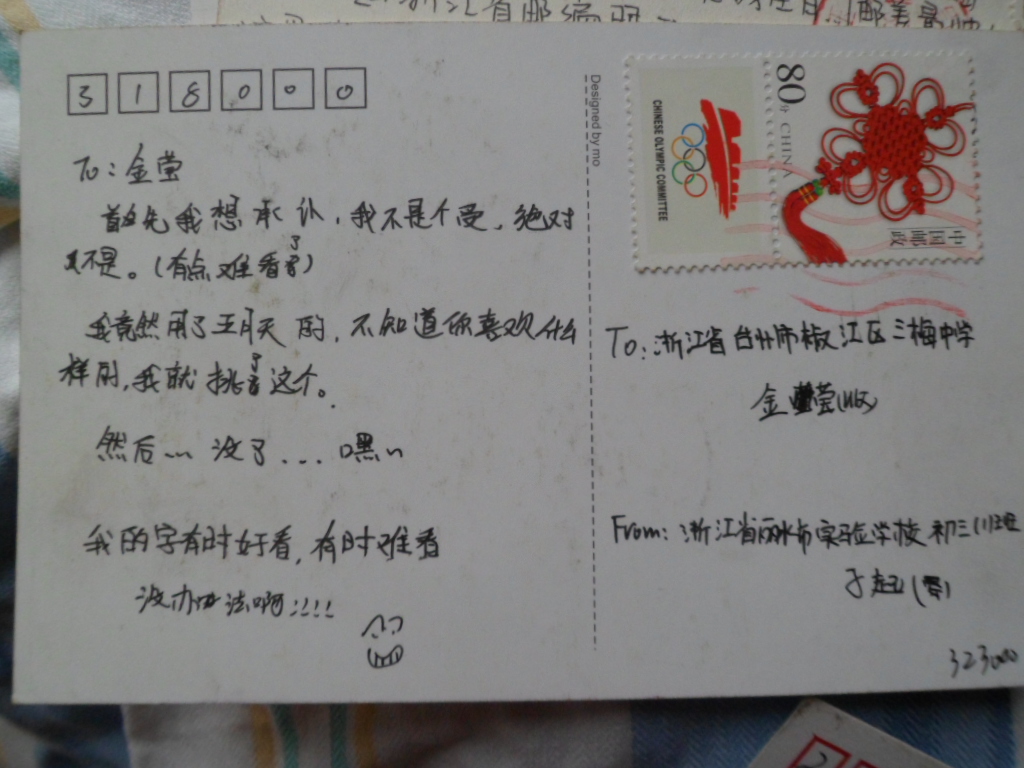 318000
To: 金莹
首先我想承认，我不是个受，绝对
不是。（有点难看了）
我竟然用了五月天的，不知道你喜欢什么
样的，我就挑了这个。
然后~~ 没了... 嘿~
我的字有时好看，有时难看
没办法啊!!!!
Designed by mo
CHINESE OLYMPIC COMMITTEE
80分 CHINA
中国邮政
To: 浙江省台州市椒江区三梅中学
金莹(收)
From: 浙江省丽水市实验学校初三(1)班
323000